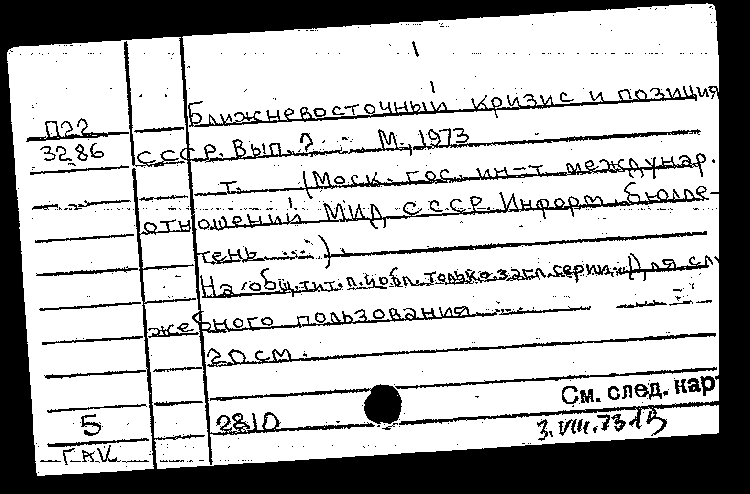 Ближневосточный кризис и позиция
П22
3286
СССР. Вып. 2 М., 1973
т. (Моск. гос. ин-т междунар.
отношений МИД СССР. Информ. бюлле-
тень ...).
На общ. тит. л. и обл. только загл. серии. Для слу
жебного пользования
20 см.
См. след. кар
5
2810
3.VIII.73
ГАК